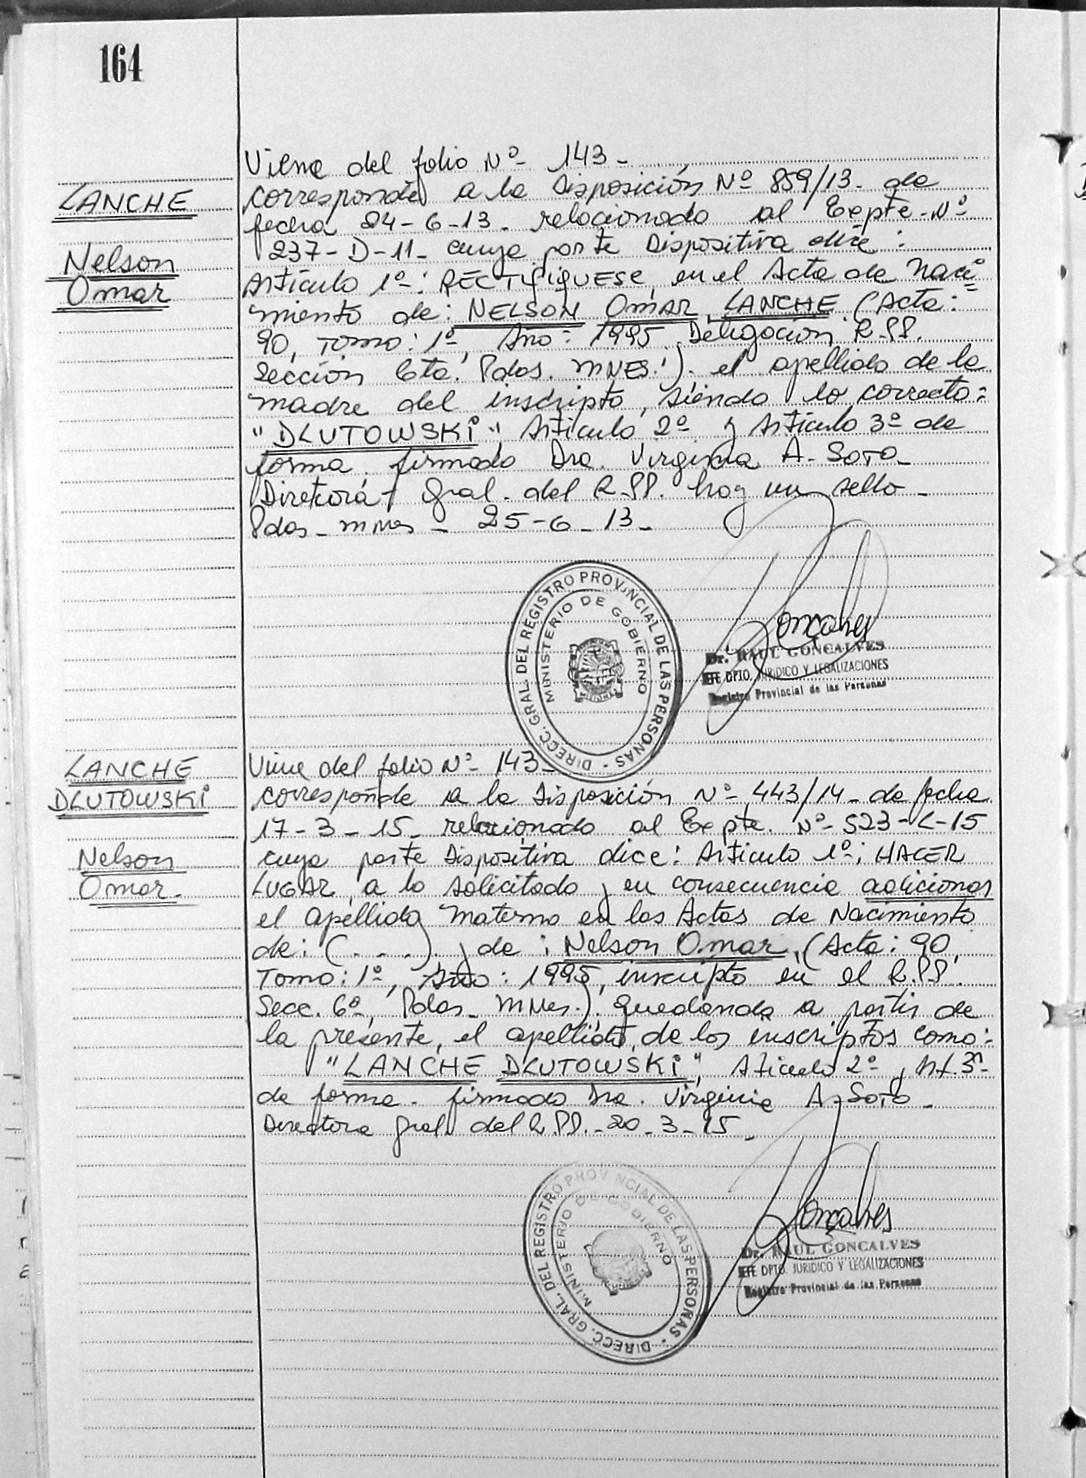 164
LANCHE
Nelson
Omar
Viene del folio Nº 143-
corresponde a la Disposición Nº 859/13- de
fecha 24-6-13- relacionado al Expte-Nº
237-D-11- cuya parte Dispositiva dice:
Artículo 1º: RECTIFIQUESE, en el Acta de Naci
miento de: NELSON OMAR LANCHE (Acta:
90, Tomo: 1º, Año: 1995, Delegación R.PP.
Sección 6ta. Pdas. MNES.) el apellido de la
madre del inscripto, siendo lo correcto:
"DLUTOWSKI", Artículo 2º y Artículo 3º de
forma. firmado Dra. Virginia A. Soto-
Directora Gral. del R.PP. hay un sello-
Pdas- mnes - 25-6-13-
DIRECC. GRAL. DEL REGISTRO PROVINCIAL DE LAS PERSONAS
MINISTERIO DE GOBIERNO
Gonçalves
Dr. RAUL GONCALVES
JEFE DPTO. JURIDICO Y LEGALIZACIONES
Registro Provincial de las Personas
LANCHE
DLUTOWSKI
Nelson
Omar.
Viene del folio Nº 143-
corresponde a la Disposición Nº 443/14- de fecha
17-3-15- relacionado al Expte. Nº 523-L-15
cuya parte Dispositiva dice: Artículo 1º: HACER
LUGAR, a lo solicitado y en consecuencia adicionar
el apellido materno en las Actas de Nacimiento
de: (...), de: Nelson Omar, (Acta: 90,
Tomo: 1º, Año: 1995, inscripto en el R.PP.
Secc. 6º, Pdas- MNes.) quedando a partir de
la presente, el apellido de los inscriptos como:
"LANCHE DLUTOWSKI", Aticulo 2º, Art. 3º-
de forma. firmado Dra. Virginia A. Soto-
Directora Gral del R.PP.-20-3-15-
DIRECC. GRAL. DEL REGISTRO PROVINCIAL DE LAS PERSONAS
MINISTERIO DE GOBIERNO
Gonçalves
Dr. RAUL GONCALVES
JEFE DPTO. JURIDICO Y LEGALIZACIONES
Registro Provincial de las Personas